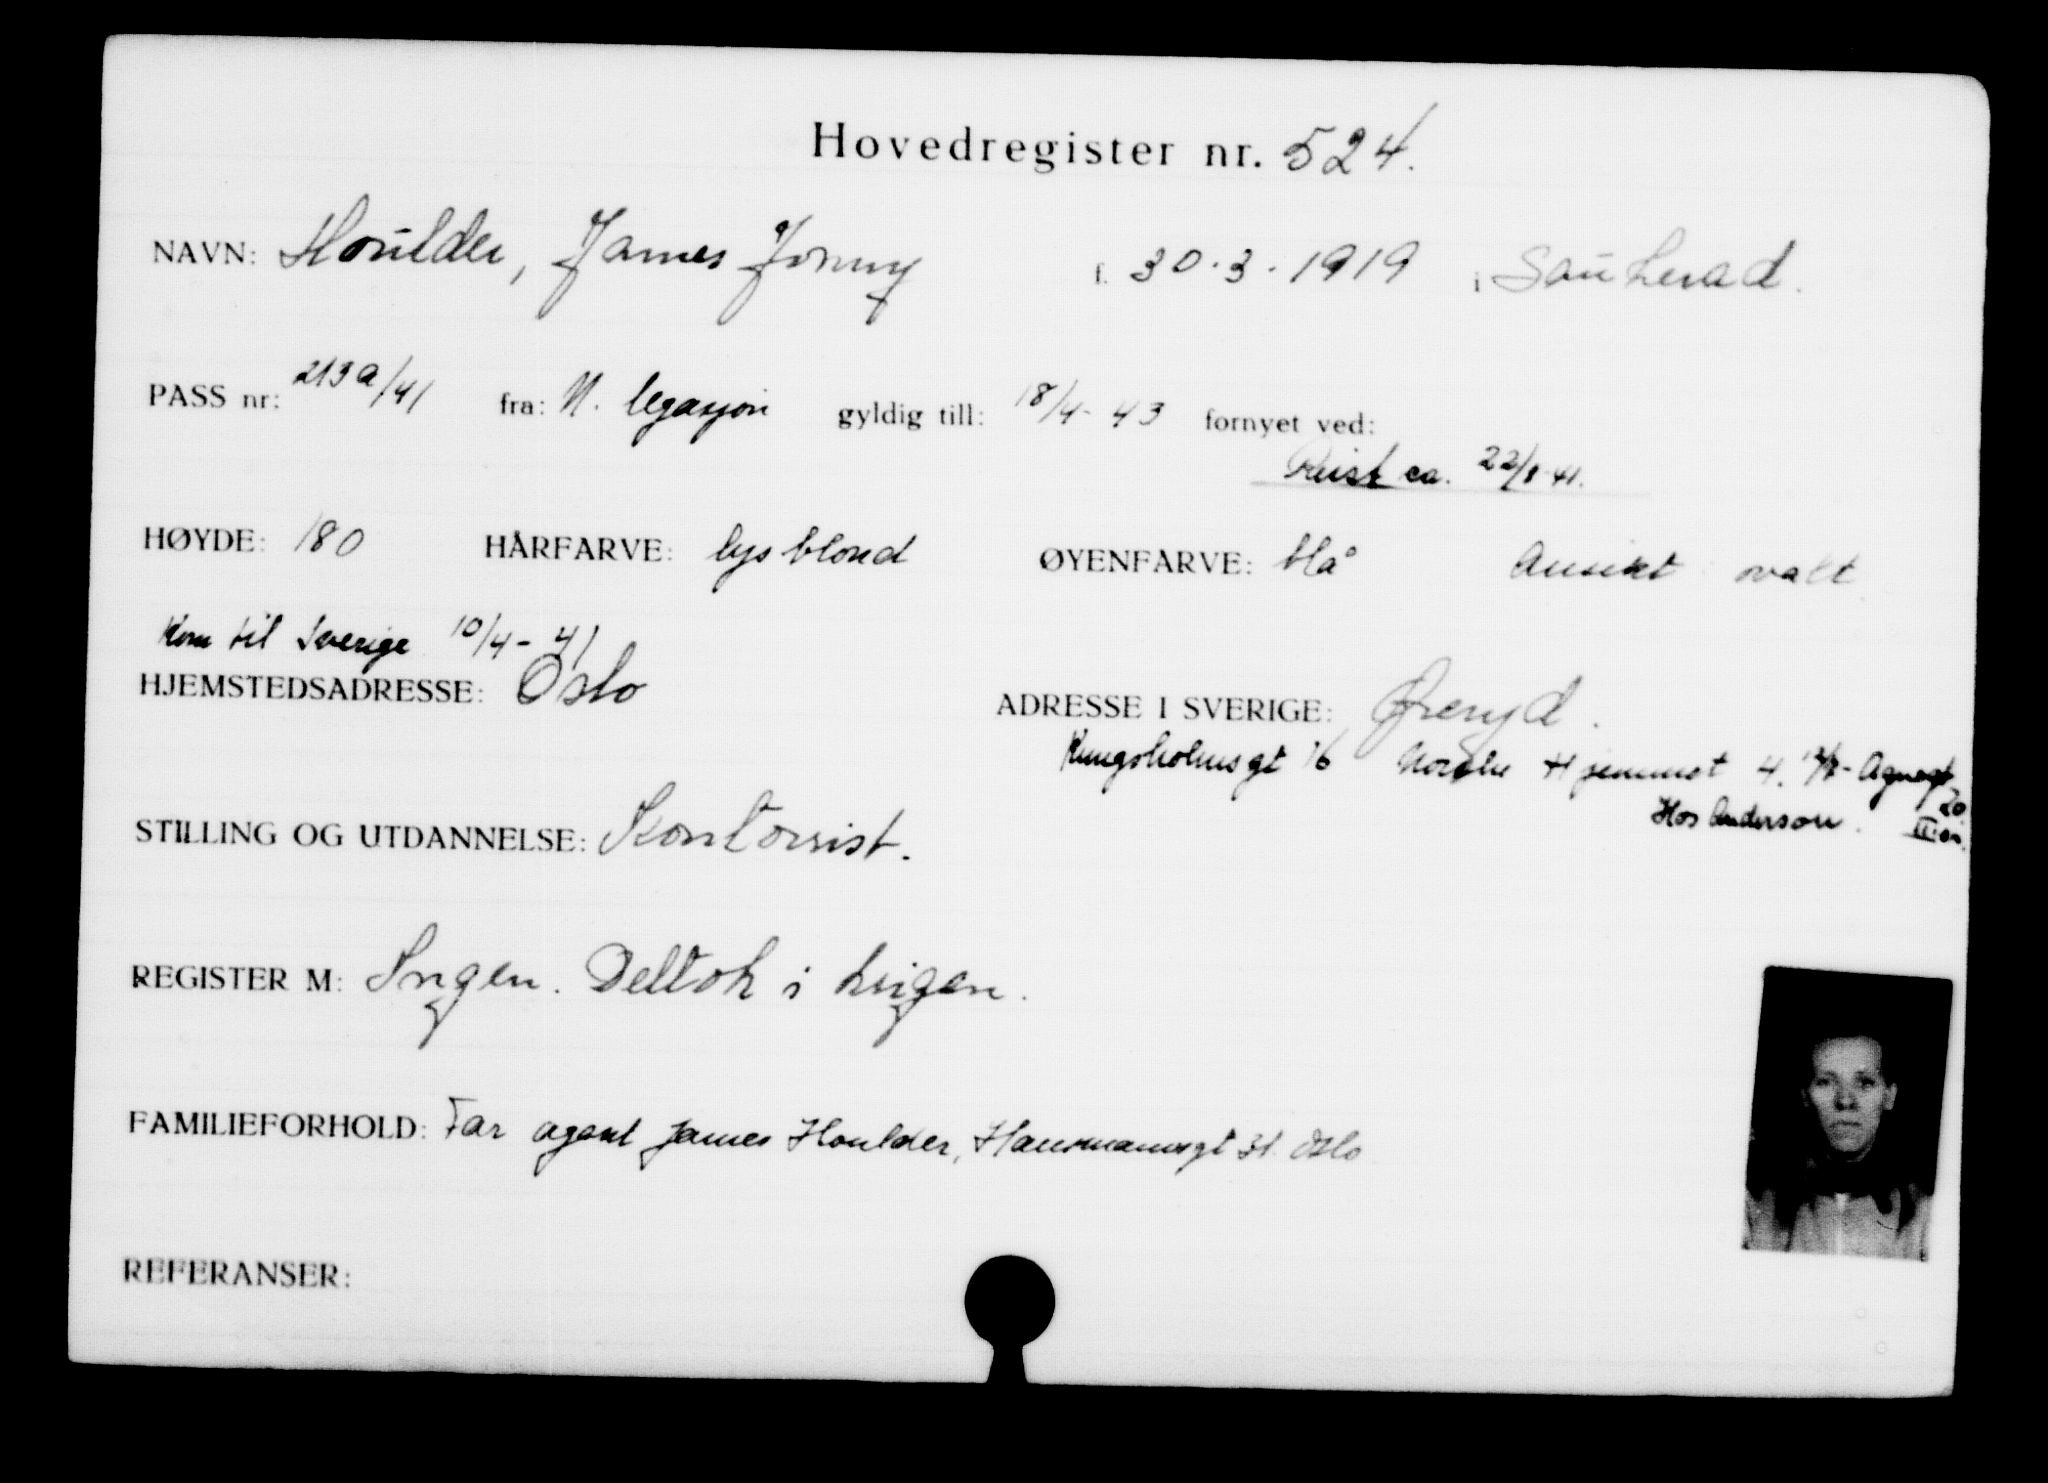 Hovedregister nr. 524.
NAVN: Houlder, James Jonny f. 30.3.1919 i Sauherad.
PASS nr: 213a/41 fra: N. legasjon gyldig till: 18/4-43 fornyet ved:
Reist ca. 22/8-41.
HØYDE: 180 HÅRFARVE: lys blond ØYENFARVE: blå Ansikt ovalt
Kom til Sverige 10/4-41
HJEMSTEDSADRESSE: Oslo ADRESSE I SVERIGE: Øreryd.
Kungsholmsgt 16 Norske Hjemmet 4.
20
Hos Anderson.
STILLING OG UTDANNELSE: Kontorist.
REGISTER M: Ingen. Deltok i krigen.
FAMILIEFORHOLD: Far agent James Houlder, Hausmannsgt 31 Oslo
REFERANSER: